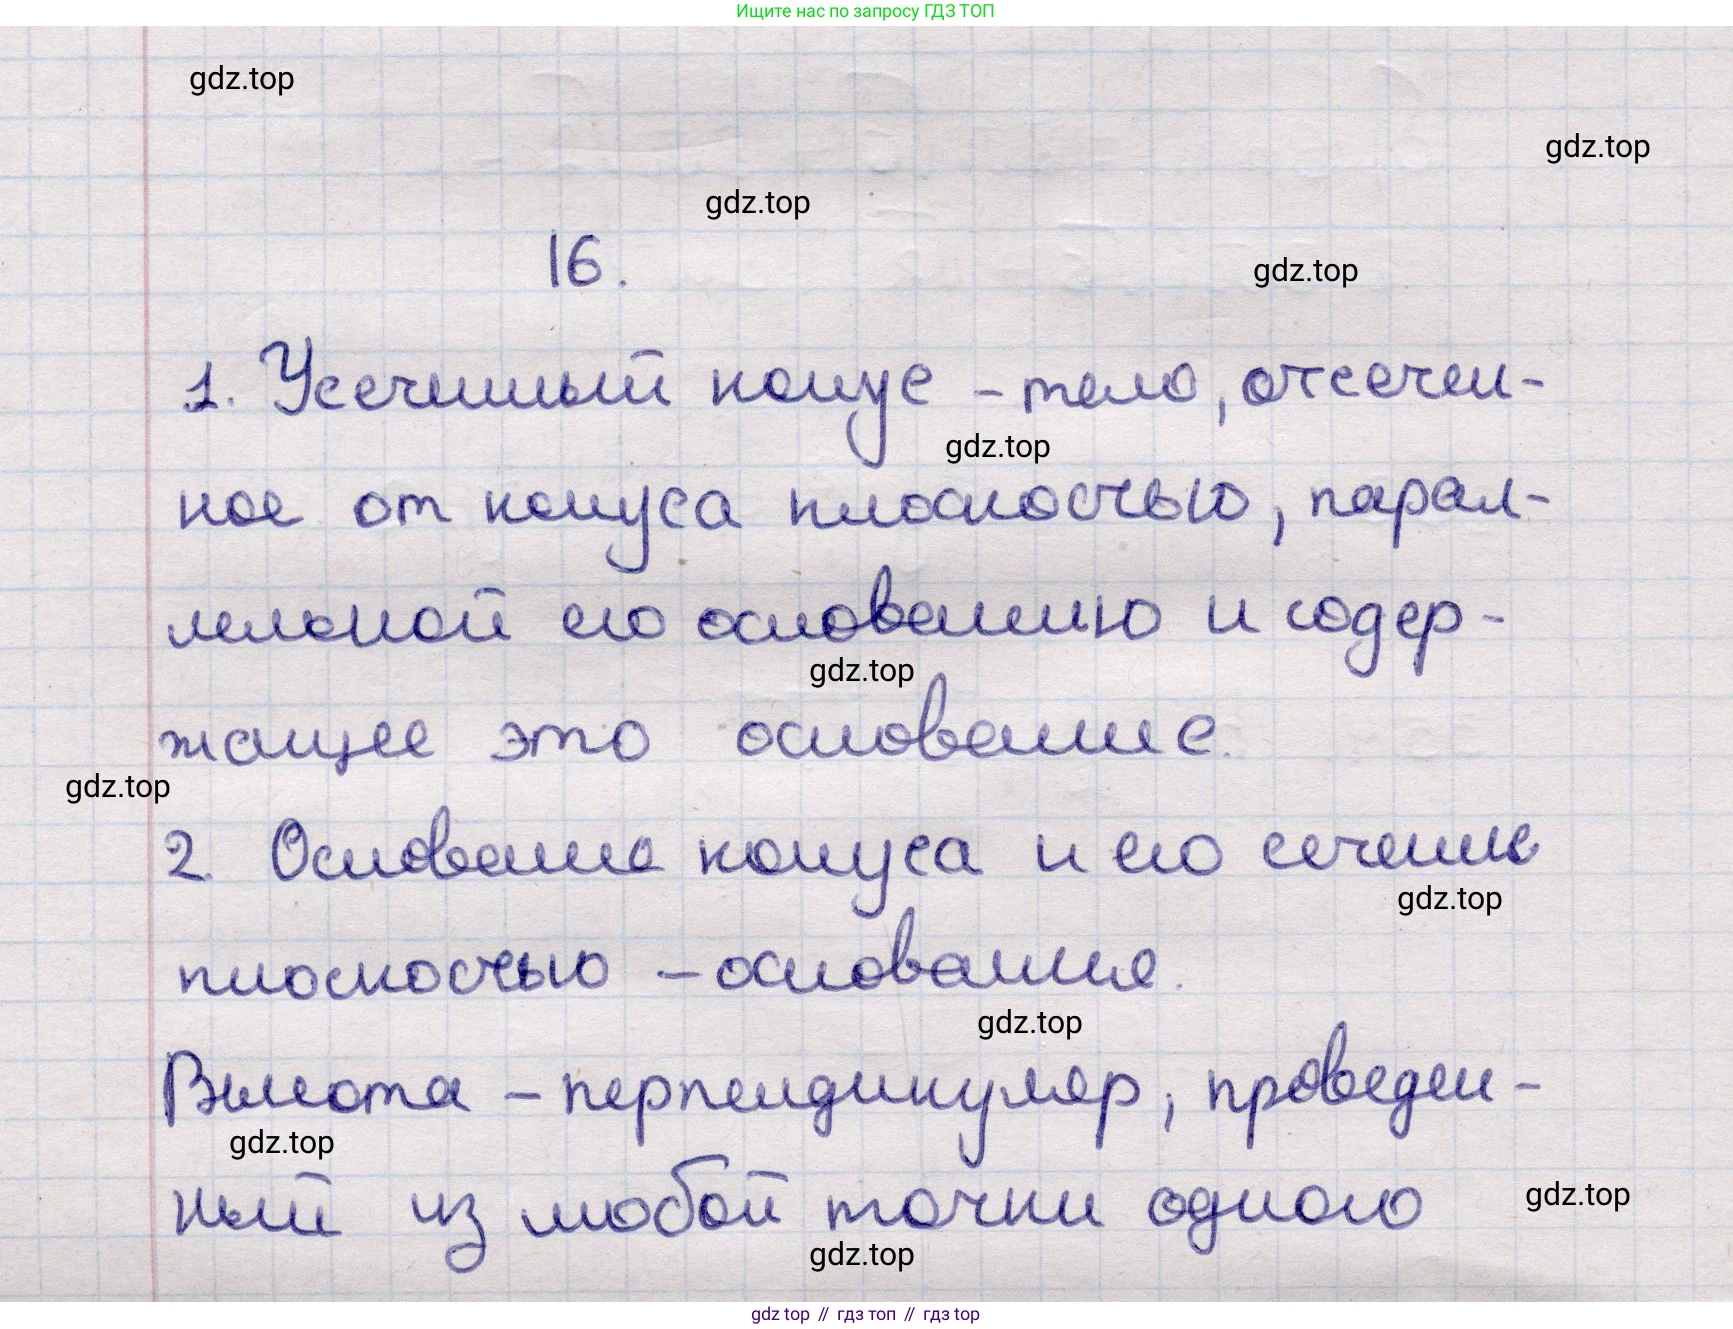 Ищите нас по запросу ГДЗ ТОП
gdz.top
gdz.top
gdz.top
16.
gdz.top
1. Усеченный конус - тело, отсечен-
gdz.top
ное от конуса плоскостью, парал-
лельной его основанию и содер-
gdz.top
жащее это основание.
gdz.top
2. Основание конуса и его сечение
gdz.top
плоскостью - основания.
gdz.top
Высота - перпендикуляр, проведен-
gdz.top
ный из любой точки одного
gdz.top
gdz.top
gdz.top // гдз топ // гдз top